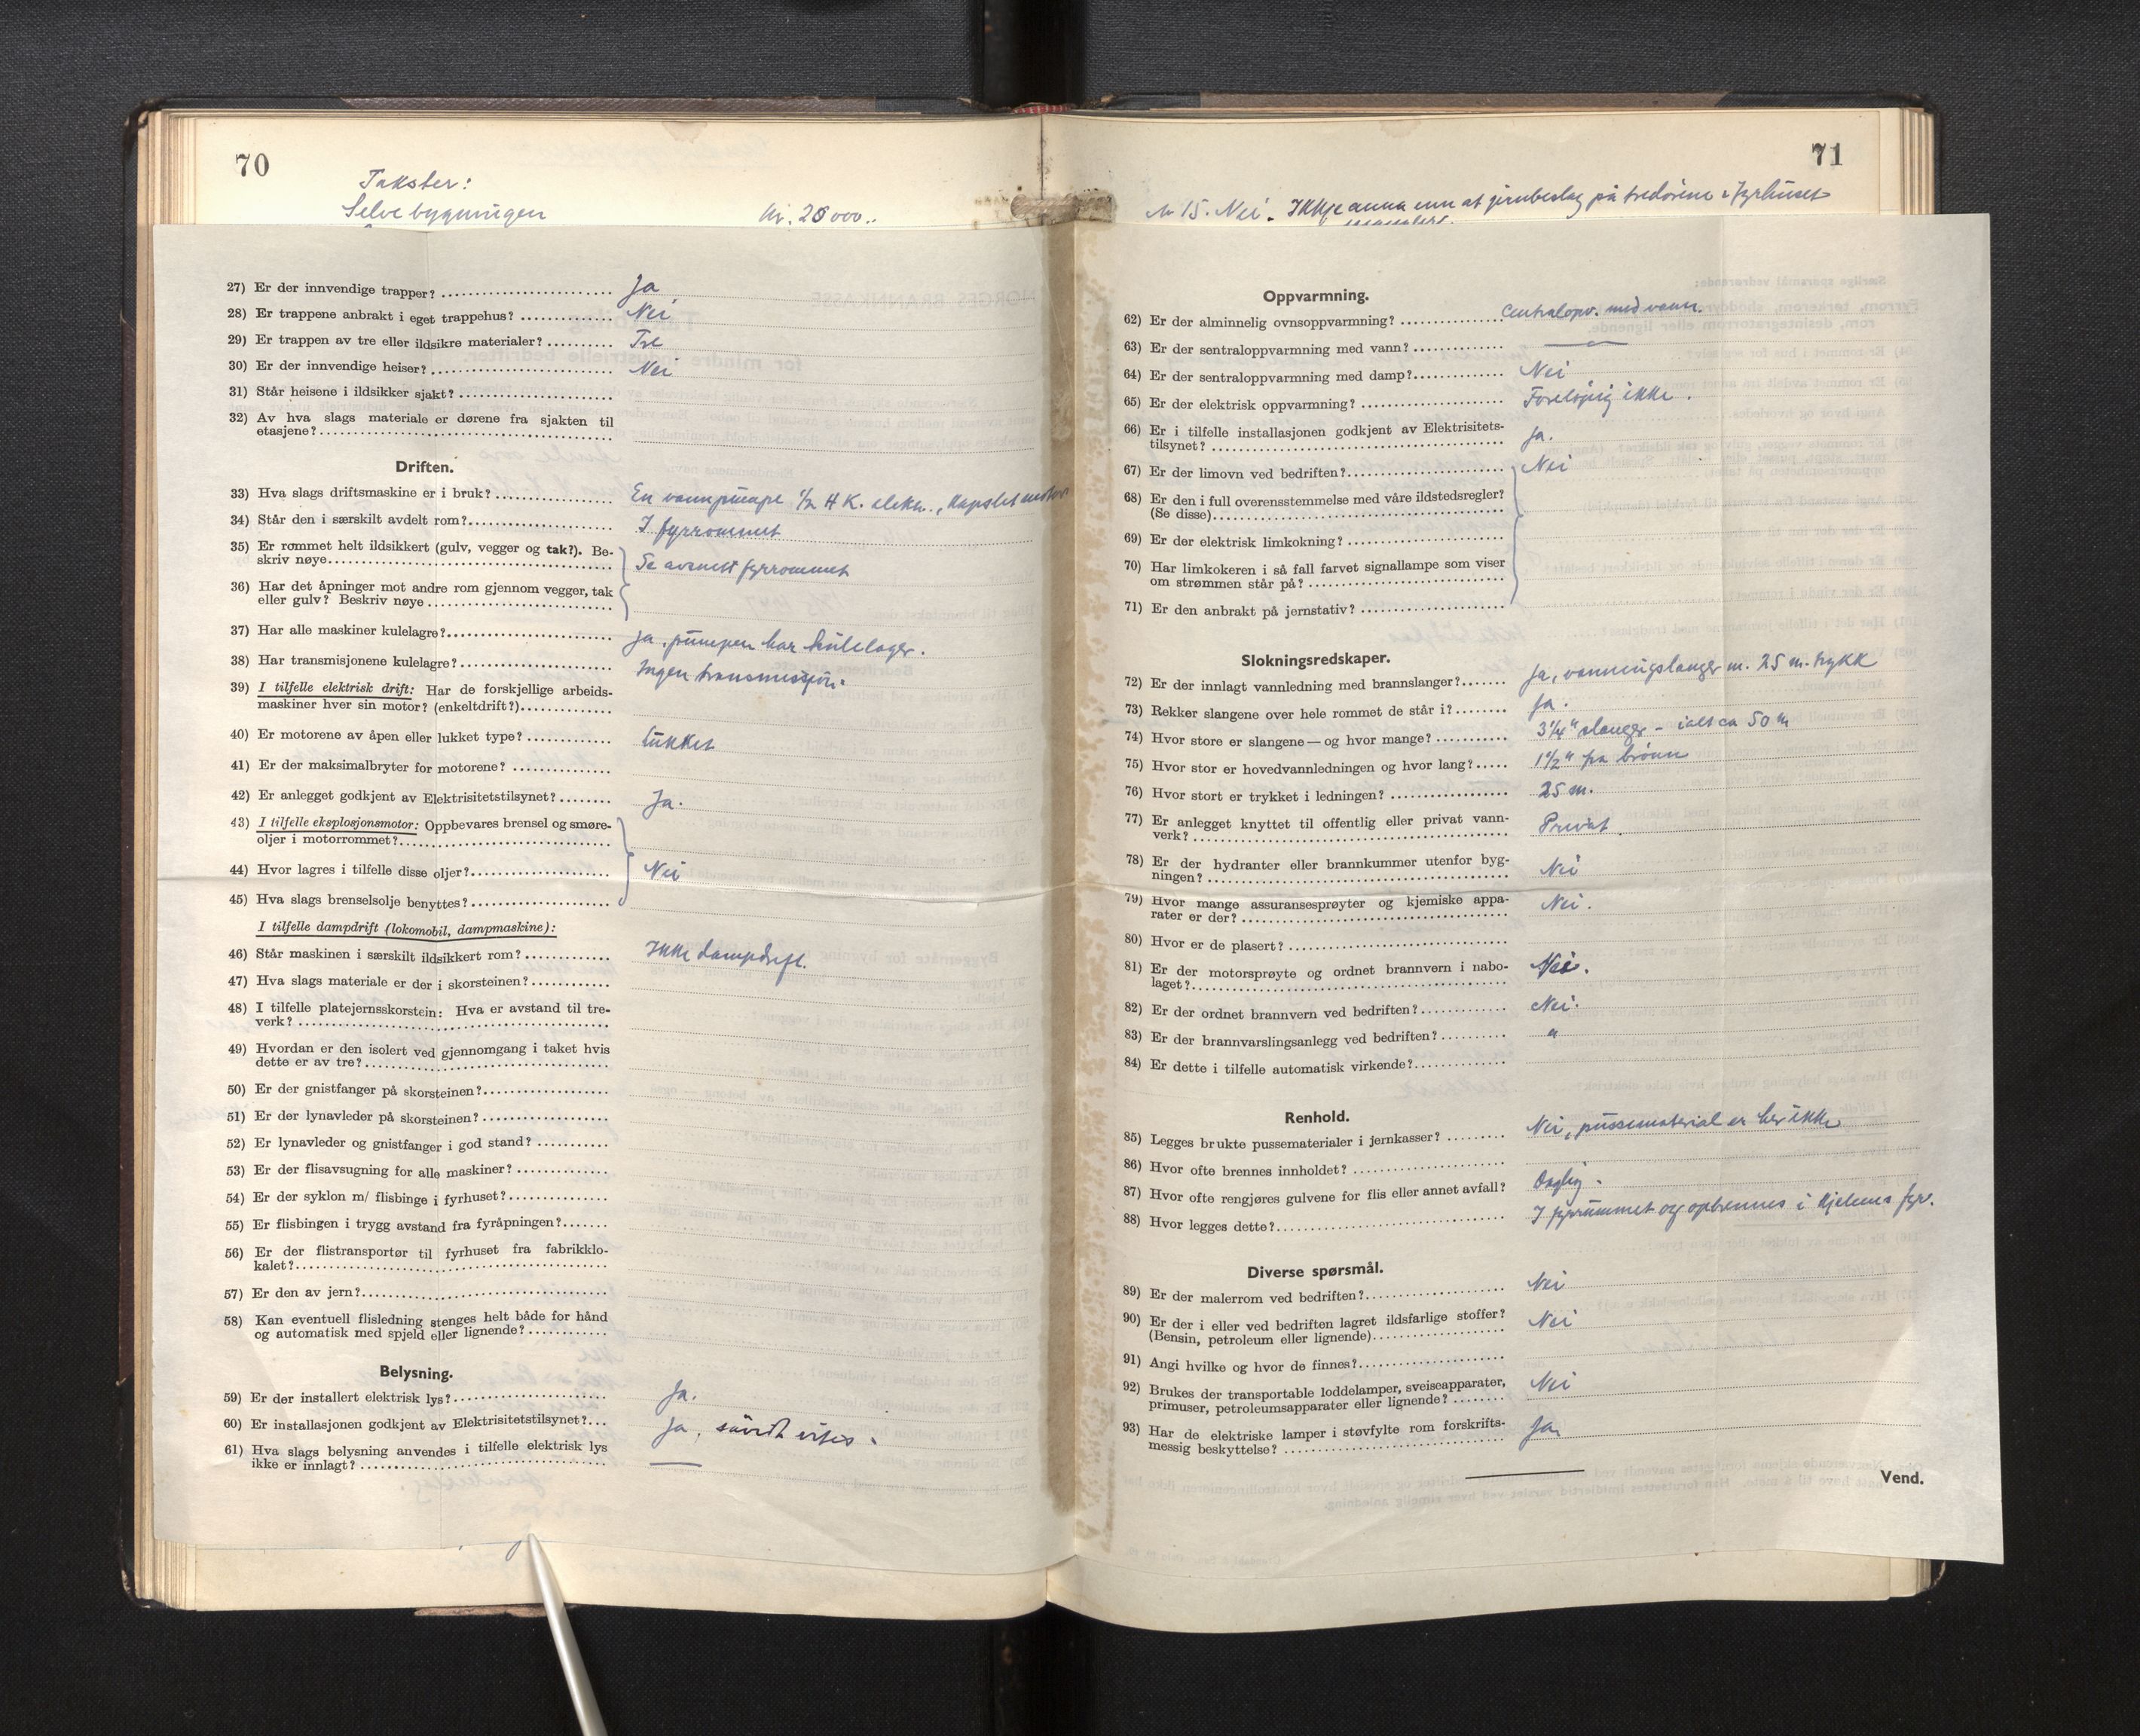 70
Takster:
Selve bygningen kr. 20 000..
27) Er der innvendige trapper? Ja
28) Er trappene anbrakt i eget trappehus? Nei
29) Er trappen av tre eller ildsikre materialer? Tre
30) Er der innvendige heiser? Nei
31) Står heisene i ildsikker sjakt?
32) Av hva slags materiale er dørene fra sjakten til
etasjene?
Driften.
33) Hva slags driftsmaskine er i bruk? En vannpumpe 1/2 HK. elektr., kapslet motor
34) Står den i særskilt avdelt rom? I fyrrommet
35) Er rommet helt ildsikkert (gulv, vegger og tak?). Be-
skriv nøye Se avsnitt fyrrommet
36) Har det åpninger mot andre rom gjennom vegger, tak
eller gulv? Beskriv nøye
37) Har alle maskiner kulelagre? Ja. pumpen har kulelager.
38) Har transmisjonene kulelagre? Ingen transmissjon.
39) I tilfelle elektrisk drift: Har de forskjellige arbeids-
maskiner hver sin motor? (enkeltdrift?)
40) Er motorene av åpen eller lukket type? lukket
41) Er der maksimalbryter for motorene?
42) Er anlegget godkjent av Elektrisitetstilsynet? Ja.
43) I tilfelle eksplosjonsmotor: Oppbevares brensel og smøre-
oljer i motorrommet?
44) Hvor lagres i tilfelle disse oljer? Nei
45) Hva slags brenselsolje benyttes?
I tilfelle dampdrift (lokomobil, dampmaskine):
46) Står maskinen i særskilt ildsikkert rom? Ikke dampdrift.
47) Hva slags materiale er der i skorsteinen?
48) I tilfelle platejernsskorstein: Hva er avstand til tre-
verk?
49) Hvordan er den isolert ved gjennomgang i taket hvis
dette er av tre?
50) Er der gnistfanger på skorsteinen?
51) Er der lynavleder på skorsteinen?
52) Er lynavleder og gnistfanger i god stand?
53) Er der flisavsugning for alle maskiner?
54) Er der syklon m/ flisbinge i fyrhuset?
55) Er flisbingen i trygg avstand fra fyråpningen?
56) Er der flistransportør til fyrhuset fra fabrikklo-
kalet?
57) Er den av jern?
58) Kan eventuell flisledning stenges helt både for hånd
og automatisk med spjeld eller lignende?
Belysning.
59) Er der installert elektrisk lys? Ja.
60) Er installasjonen godkjent av Elektrisitetstilsynet? Ja, såvidt vites.
61) Hva slags belysning anvendes i tilfelle elektrisk lys
ikke er innlagt? —
71
Nr 15. Nei. Ikkje anna enn at jernbeslag på tredørene i fyrhuset
Oppvarmning.
62) Er der alminnelig ovnsoppvarmning? Centralopv. med vann.
63) Er der sentraloppvarmning med vann? — " —
64) Er der sentraloppvarmning med damp? Nei
65) Er der elektrisk oppvarmning? Foreløpig ikke.
66) Er i tilfelle installasjonen godkjent av Elektrisitets-
tilsynet? Ja.
67) Er der limovn ved bedriften? Nei
68) Er den i full overensstemmelse med våre ildstedsregler?
(Se disse)
69) Er der elektrisk limkokning?
70) Har limkokeren i så fall farvet signallampe som viser
om strømmen står på?
71) Er den anbrakt på jernstativ?
Slokningsredskaper.
72) Er der innlagt vannledning med brannslanger? Ja, vanningslanger m. 25 m. trykk
73) Rekker slangene over hele rommet de står i? Ja.
74) Hvor store er slangene — og hvor mange? 3/4" slanger - ialt ca 50 m
75) Hvor stor er hovedvannledningen og hvor lang? 1 1/2" fra brønn
76) Hvor stort er trykket i ledningen? 25 m.
77) Er anlegget knyttet til offentlig eller privat vann-
verk? Privat.
78) Er der hydranter eller brannkummer utenfor byg-
ningen? Nei
79) Hvor mange assuransesprøyter og kjemiske appa-
rater er der? Nei.
80) Hvor er de plasert?
81) Er der motorsprøyte og ordnet brannvern i nabo-
laget? Nei.
82) Er der ordnet brannvern ved bedriften? Nei.
83) Er der brannvarslingsanlegg ved bedriften? "
84) Er dette i tilfelle automatisk virkende?
Renhold.
85) Legges brukte pussematerialer i jernkasser? Nei, pussematerial er her ikke
86) Hvor ofte brennes innholdet?
87) Hvor ofte rengjøres gulvene for flis eller annet avfall? Daglig.
88) Hvor legges dette? I fyrrummet og opbrennes i kjelens fyr.
Diverse spørsmål.
89) Er der malerrom ved bedriften? Nei
90) Er der i eller ved bedriften lagret ildsfarlige stoffer?
(Bensin, petroleum eller lignende) Nei
91) Angi hvilke og hvor de finnes?
92) Brukes der transportable loddelamper, sveiseapparater,
primuser, petroleumsapparater eller lignende? Nei
93) Har de elektriske lamper i støvfylte rom forskrifts-
messig beskyttelse? Ja,
Vend.